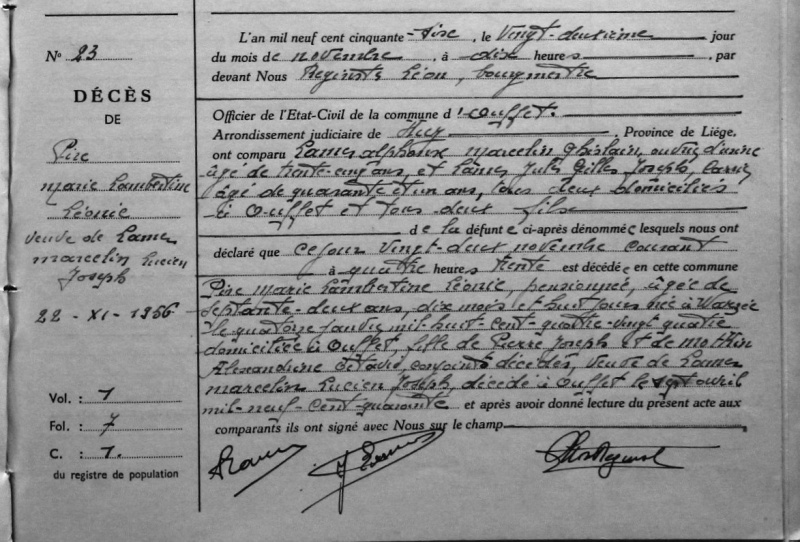 N° 23
DÉCÈS
DE
Pire
Marie Lambertine
Léonie
Veuve de Lamer
Marcelin Lucien
Joseph
22 - XI - 1956
Vol. : 1
Fol. : 7
C. : 1.
du registre de population
L'an mil neuf cent cinquante - six, le vingt-deuxième jour
du mois de novembre, à dix heures, par
devant Nous Reginster Léon, bourgmestre
Officier de l'Etat-Civil de la commune d'Ouffet.
Arrondissement judiciaire de Huy, Province de Liége,
ont comparu Lamer Alphonse Marcelin Ghislain, ouvrier d'usine
âgé de trente-cinq ans, et Lamer Jules Gilles Joseph,
âgé de quarante et un ans, tous deux domiciliés
à Ouffet et tous deux fils
de la défunte ci-après dénommée lesquels nous ont
déclaré que ce jour vingt-deux novembre courant
à quatre heures trente est décédée en cette commune
Pire Marie Lambertine Léonie, pensionnée, âgée de
septante-deux ans, dix mois et huit jours née à Warzée
le quatorze janvier mil-huit-cent-quatre-vingt quatre
domiciliée à Ouffet, fille de Pierre Joseph et de Mottin
Alexandrine Octavie conjoints décédés, veuve de Lamer
Marcelin Lucien Joseph, décédé à Ouffet le sept avril
mil-neuf-cent-quarante et après avoir donné lecture du présent acte aux
comparants ils ont signé avec Nous sur le champ